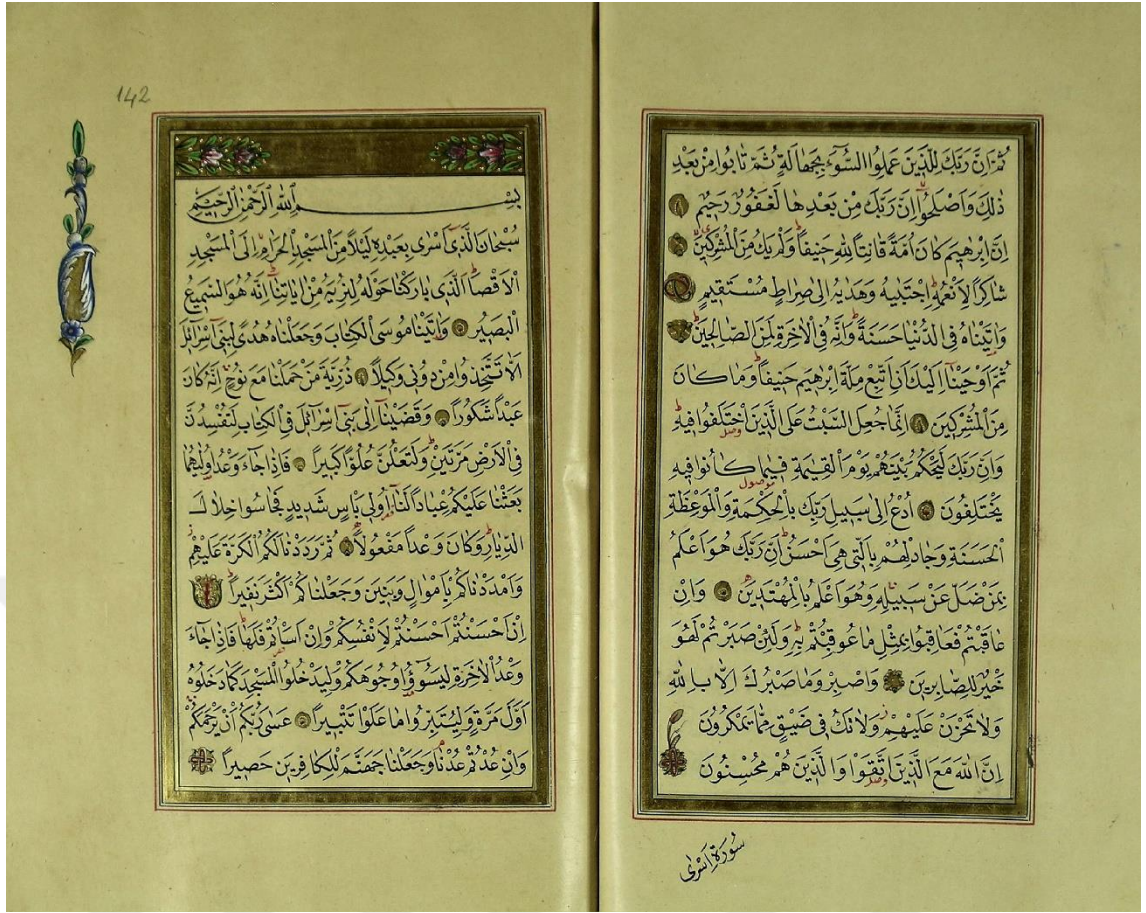 ثُمَّ اِنَّ رَبَّكَ لِلَّذ۪ينَ عَمِلُوا السُّٓوءَ بِجَهَالَةٍ ثُمَّ تَابُوا مِنْ بَعْدِ
ذٰلِكَ وَاَصْلَحُٓوا اِنَّ رَبَّكَ مِنْ بَعْدِهَا لَغَفُورٌ رَح۪يمٌ
اِنَّ اِبْرٰه۪يمَ كَانَ اُمَّةً قَانِتًا لِلّٰهِ حَن۪يفًا وَلَمْ يَكُ مِنَ الْمُشْرِك۪ينَ
شَاكِرًا لِاَنْعُمِهِ اِجْتَبٰيهُ وَهَدٰيهُ اِلٰى صِرَاطٍ مُسْتَق۪يمٍ
وَاٰتَيْنَاهُ فِي الدُّنْيَا حَسَنَةً وَاِنَّهُ فِي الْاٰخِرَةِ لَمِنَ الصَّالِح۪ينَ
ثُمَّ اَوْحَيْنَٓا اِلَيْكَ اَنِ اتَّبِعْ مِلَّةَ اِبْرٰه۪يمَ حَن۪يفًا وَمَا كَانَ
مِنَ الْمُشْرِك۪ينَ اِنَّمَا جُعِلَ السَّبْتُ عَلَى الَّذ۪ينَ اخْتَلَفُوا ف۪يهِ
وَاِنَّ رَبَّكَ لَيَحْكُمُ بَيْنَهُمْ يَوْمَ الْقِيٰمَةِ ف۪يمَا كَانُوا ف۪يهِ
يَخْتَلِفُونَ اُدْعُ اِلٰى سَب۪يلِ رَبِّكَ بِالْحِكْمَةِ وَالْمَوْعِظَةِ
الْحَسَنَةِ وَجَادِلْهُمْ بِالَّت۪ي هِيَ اَحْسَنُ اِنَّ رَبَّكَ هُوَ اَعْلَمُ
بِمَنْ ضَلَّ عَنْ سَب۪يلِه۪ وَهُوَ اَعْلَمُ بِالْمُهْتَد۪ينَ وَاِنْ
عَاقَبْتُمْ فَعَاقِبُوا بِمِثْلِ مَا عُوقِبْتُمْ بِه۪ وَلَئِنْ صَبَرْتُمْ لَهُوَ
خَيْرٌ لِلصَّابِر۪ينَ وَاصْبِرْ وَمَا صَبْرُكَ اِلَّا بِاللّٰهِ
وَلَا تَحْزَنْ عَلَيْهِمْ وَلَا تَكُ ف۪ي ضَيْقٍ مِمَّا يَمْكُرُونَ
اِنَّ اللّٰهَ مَعَ الَّذ۪ينَ اتَّقَوْا وَالَّذ۪ينَ هُمْ مُحْسِنُونَ
سُورَةِ اَسْرٰى
142
بِسْمِ اللّٰهِ الرَّحْمٰنِ الرَّح۪يمِ
سُبْحَانَ الَّذ۪ٓي اَسْرٰى بِعَبْدِه۪ لَيْلًا مِنَ الْمَسْجِدِ الْحَرَامِ اِلَى الْمَسْجِدِ
الْاَقْصَا الَّذ۪ي بَارَكْنَا حَوْلَهُ لِنُرِيَهُ مِنْ اٰيَاتِنَا اِنَّهُ هُوَ السَّم۪يعُ
الْبَص۪يرُ وَاٰتَيْنَا مُوسَى الْكِتَابَ وَجَعَلْنَاهُ هُدًى لِبَن۪ٓي اِسْرَٓائ۪لَ
اَلَّا تَتَّخِذُوا مِنْ دُون۪ي وَك۪يلًا ذُرِّيَّةَ مَنْ حَمَلْنَا مَعَ نُوحٍ اِنَّهُ كَانَ
عَبْدًا شَكُورًا وَقَضَيْنَٓا اِلٰى بَن۪ٓي اِسْرَٓائ۪لَ فِي الْكِتَابِ لَتُفْسِدُنَّ
فِي الْاَرْضِ مَرَّتَيْنِ وَلَتَعْلُنَّ عُلُوًّا كَب۪يرًا فَاِذَا جَٓاءَ وَعْدُ اُو۫لٰيهُمَا
بَعَثْنَا عَلَيْكُمْ عِبَادًا لَنَٓا اُو۬ل۪ي بَأْسٍ شَد۪يدٍ فَجَاسُوا خِلَالَ
الدِّيَارِ وَكَانَ وَعْدًا مَفْعُولًا ثُمَّ رَدَدْنَا لَكُمُ الْكَرَّةَ عَلَيْهِمْ
وَاَمْدَدْنَاكُمْ بِاَمْوَالٍ وَبَن۪ينَ وَجَعَلْنَاكُمْ اَكْثَرَ نَف۪يرًا
اِنْ اَحْسَنْتُمْ اَحْسَنْتُمْ لِاَنْفُسِكُمْ وَاِنْ اَسَأْتُمْ فَلَهَا فَاِذَا جَٓاءَ
وَعْدُ الْاٰخِرَةِ لِيَسُٓوؤُ۫ا وُجُوهَكُمْ وَلِيَدْخُلُوا الْمَسْجِدَ كَمَا دَخَلُوهُ
اَوَّلَ مَرَّةٍ وَلِيُتَبِّرُوا مَا عَلَوْا تَتْب۪يرًا عَسٰى رَبُّكُمْ اَنْ يَرْحَمَكُمْ
وَاِنْ عُدْتُمْ عُدْنَا وَجَعَلْنَا جَهَنَّمَ لِلْكَافِر۪ينَ حَص۪يرًا